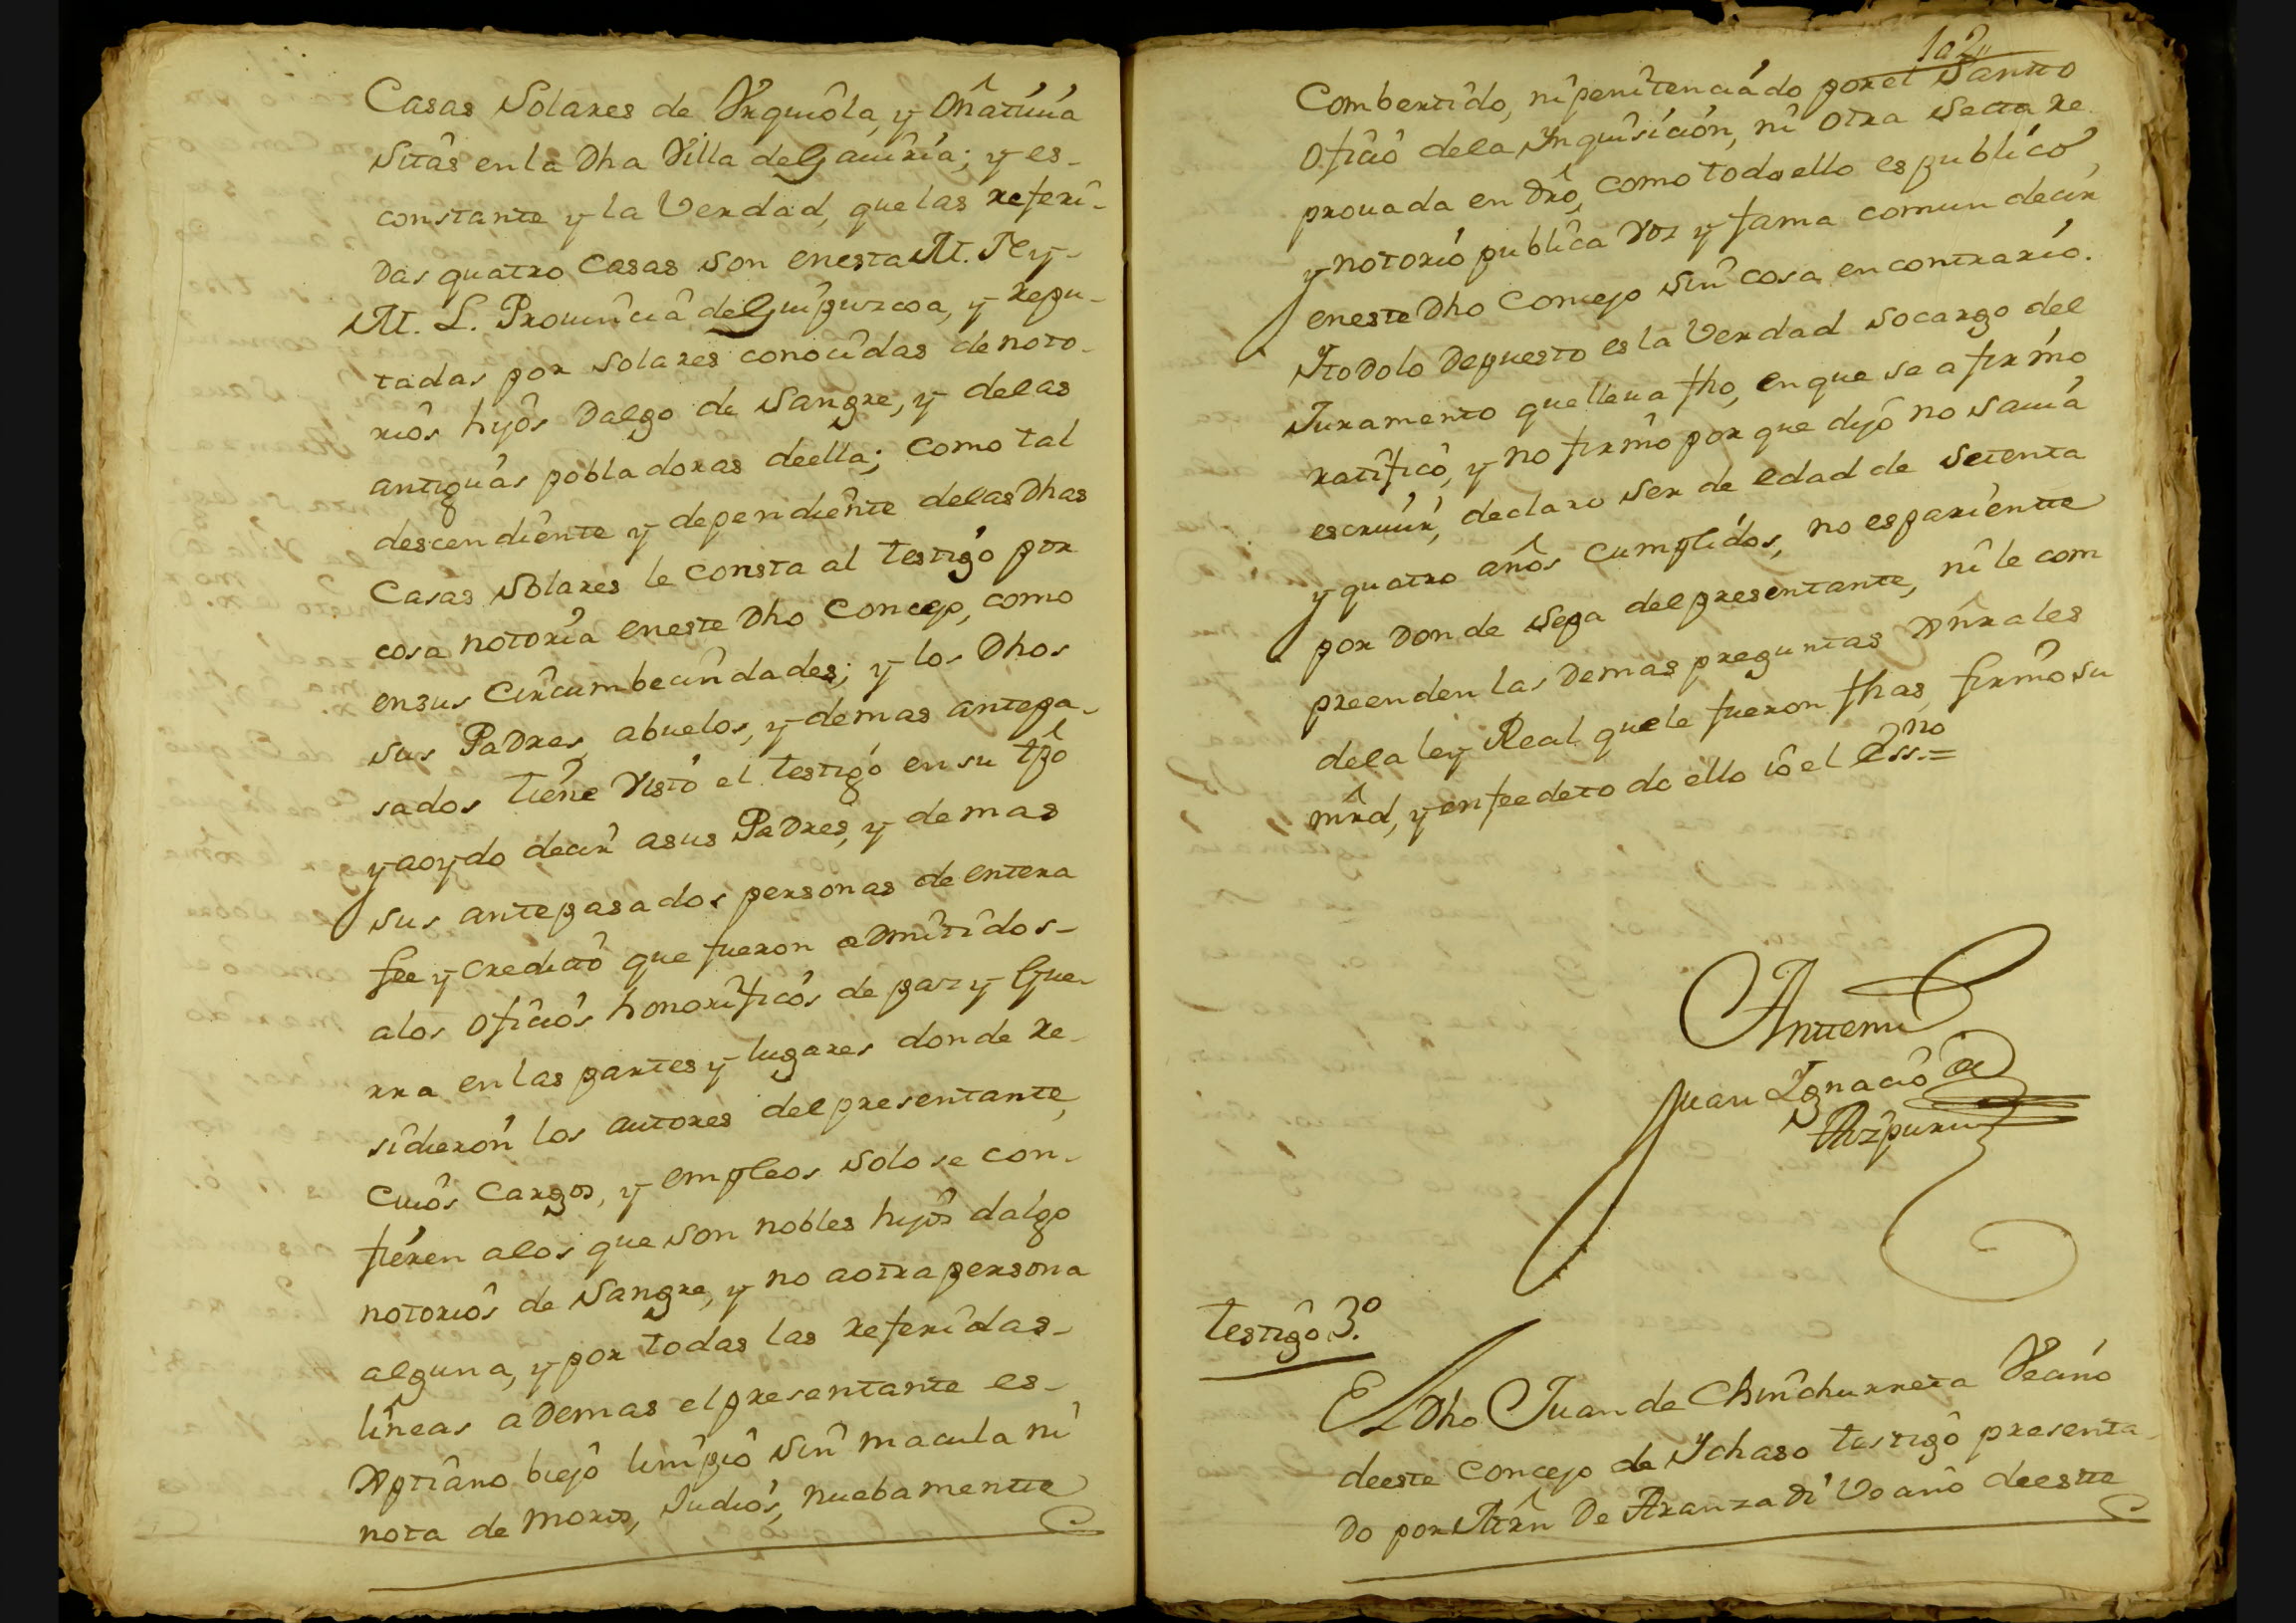 Casas Solares de Vrquiôla, y Oñatiuia
Sitâs en la Dha Villa de Gauiria; y es-
constante y la Verdad, que las referi-
das quatro Casas son en esta M. N. y
M. L. Prouincia de Guipuzcoa, y repu-
tadas por Solares conocidas de noto-
riôs hijôs Dalgo de Sangre, y delas
antiguâs pobladoras deella; como tal
descendiênte y dependiênte delas Dhas
Casas Solares le consta al testigo por
cosa notoria eneste Dho Concejo, como
ensus Circumbecindades; y los Dhos
sus Padres, abuelos, y demas antepa-
sados tiene Visto el testigo en su tpô
y aoydo decir asus Padres, y demas
sus antepasados personas de entera
fee y credictô que fueron admitidos-
alos oficiôs honorificôs de paz y Gue-
rra en las partes y lugares donde re-
sidieron los autores del presentante,
cuiôs Cargos, y empleos solo se con-
fieren alos que son nobles hijôs dalgo
notoriôs de Sangre, y no aotra persona
alguna, y por todas las referidas-
lineas ademas el presentante es-
Xptiano biejô limpiô Sin macula ni
nota de moros, Judiôs, nuebamentte
1a2
Combertido, ni penitenciado por el Santto
Oficiô dela Inquisición, ni otra Secta re
prouada en Drô, como todo ello es publico
y notorio publica Voz y fama comun decir
eneste Dho Concejo sin cosa en contrario.
Y todo lo Depuesto es la Verdad socargo del
Juramento que lleua fho, en que se afirmo
ratificô, y no firmô por que dijô no sauia
escriuir, declaro ser de edad de setenta
y quatro años Cumplidos, no es parientte
por donde sepa del presentante, ni le com
preenden las Demas preguntas Gnrales
dela ley Real que le fueron fhas, firmô su
mrd, y en fee de to do ello iô el Ess.no =
Anttemi
Juan Ignaciô de
Azpuru
testigô 3.º
El Dho Juan de Chinchurreta Veano
deeste concejo de Ychaso testigô presenta-
do por Mrn De Aranzadi Veanô deestte